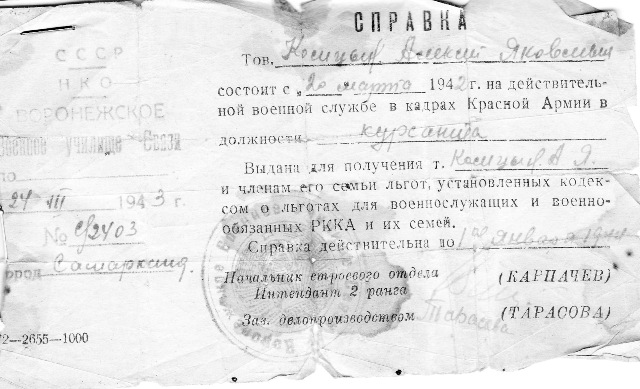 СПРАВКА
СССР
НКО
ВОРОНЕЖСКОЕ
Военное Училище Связи
24 III 1943 г.
№ 2403
город Самарканд.
Тов. Косицын Алексей Яковлевич
состоит с „20 марта 1942 г. на действитель-
ной военной службе в кадрах Красной Армии в
должности курсанта
Выдана для получения т. Косицын А. Я.
и членам его семьи льгот, установленных кодек-
сом о льготах для военнослужащих и военно-
обязанных РККА и их семей.
Справка действительна по 1 января 1944
Начальник строевого отдела
Интендант 2 ранга
(КАРПАЧЕВ)
Зав. делопроизводством Тарасова (ТАРАСОВА)
2—2655—1000